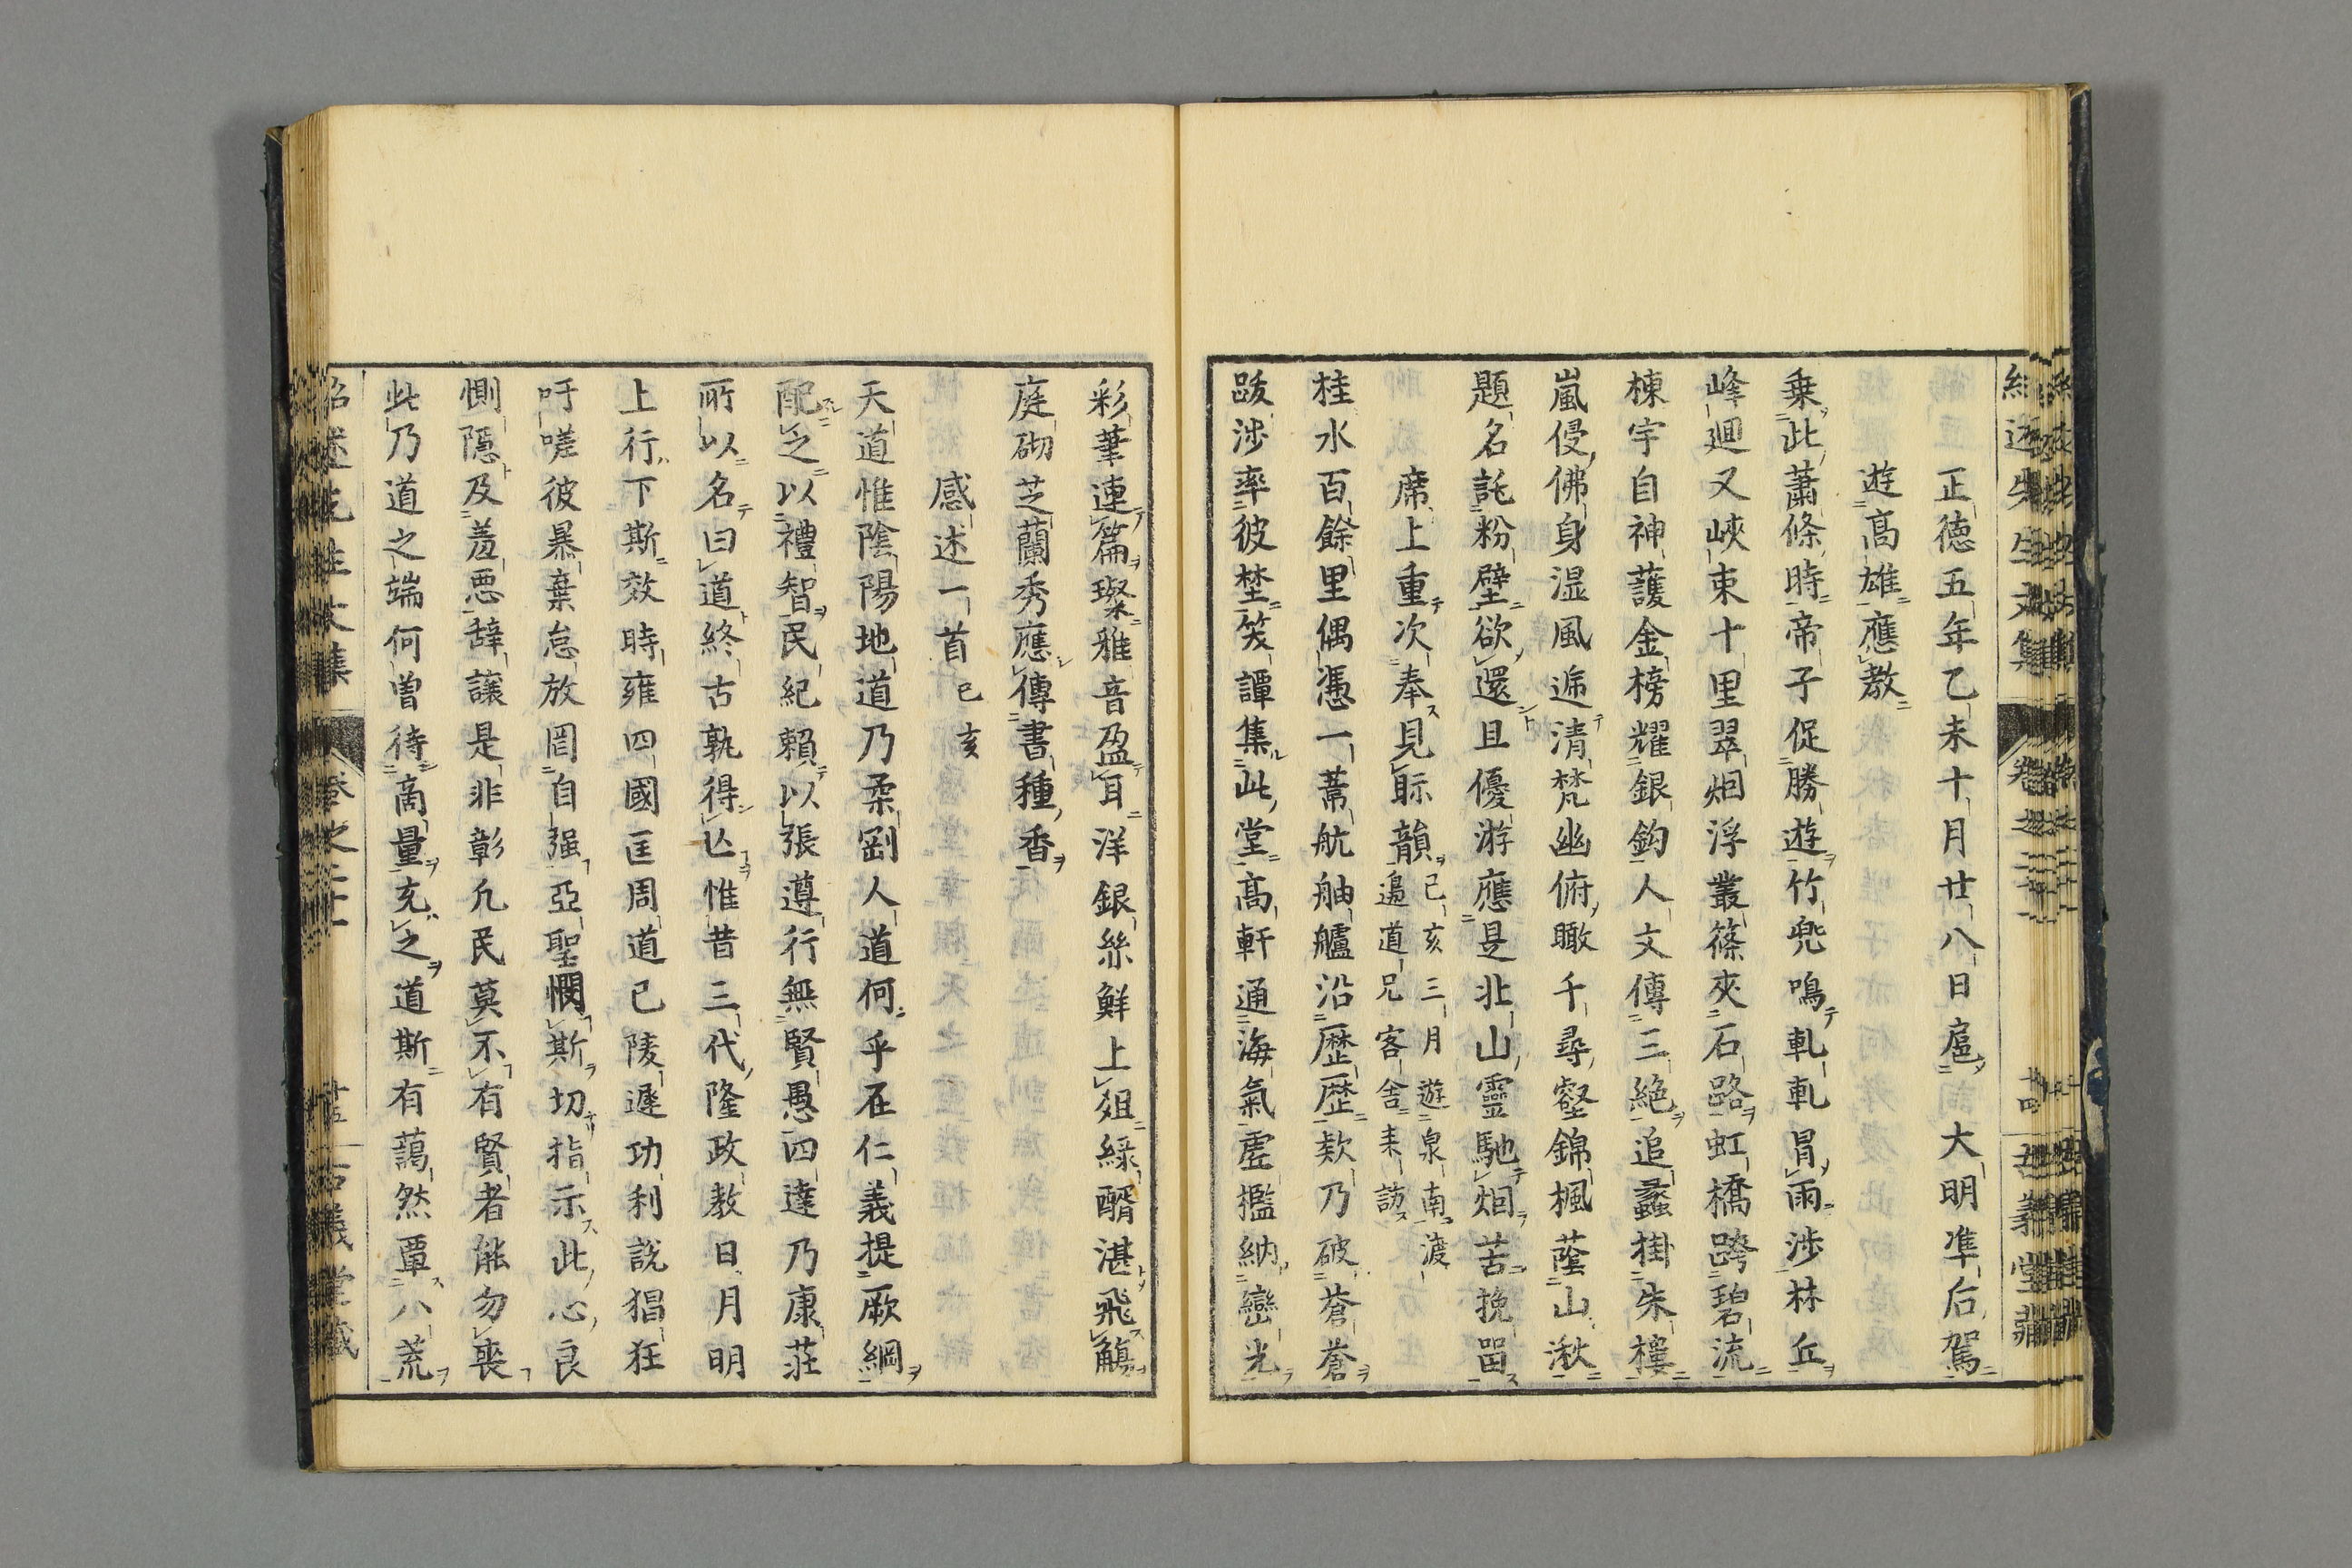 正徳五年乙未十月廿八日扈大明準后駕
遊高雄應教
乗此蕭條時帝子促勝遊竹兜鳴軋軋冒雨渉林丘
峰廻又峽束十里翠烟浮叢篠夾石路虹橋跨碧流
棟宇自神護金榜耀銀鈎人文傳三絶追蠡掛朱樓
嵐侵佛身湿風逓清梵幽俯瞰千尋壑錦楓蔭山湫
題名託粉壁欲還且優游應是北山靈馳烟苦挽畱
席上重次奉見眎韻己亥三月遊泉南渡邉道兄客舎来訪
桂水百餘里偶憑一葦航舳艫沿歴歴欵乃破蒼蒼
跋渉率彼埜笑譚集此堂高軒通海氣虚檻納巒光
彩筆連篇璨雅音盈耳洋銀絲鮮上俎綠醑湛飛觴
庭砌芝蘭秀應傳書種香
感述一首己亥
天道惟陰陽地道乃柔剛人道何乎在仁義提厥綱
配之以禮智民紀頼以張遵行無賢愚四達乃康莊
所以名曰道終古孰得亾惟昔三代隆政教日月明
上行下斯效時雍四國匡周道已陵遲功利説猖狂
吁嗟彼暴棄怠放罔自强亞聖憫斯切指示此心良
惻隱及羞悪辞讓是非彰凡民莫不有賢者能勿喪
此乃道之端何曽待商量充之道斯有藹然覃八荒
紹述先生文集
卷之二十
十五
古義堂藏